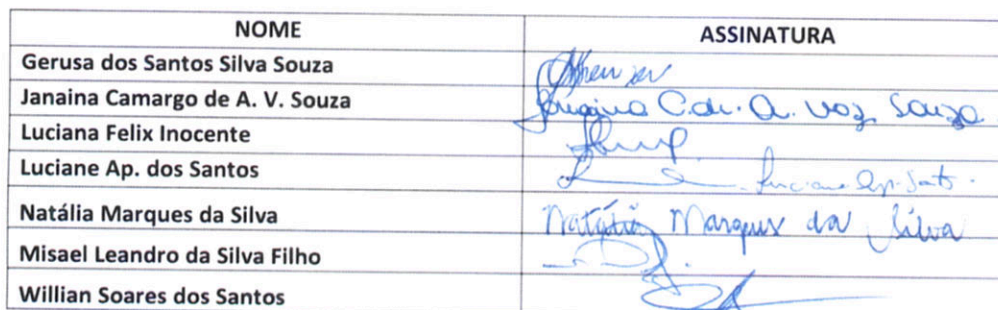 NOME ASSINATURA
Gerusa dos Santos Silva Souza
Janaina Camargo de A. V. Souza Janaina C. de. A. Vaz Souza
Luciana Felix Inocente
Luciane Ap. dos Santos Luciane Ap. Santos
Natália Marques da Silva Natália Marques da Silva
Misael Leandro da Silva Filho
Willian Soares dos Santos